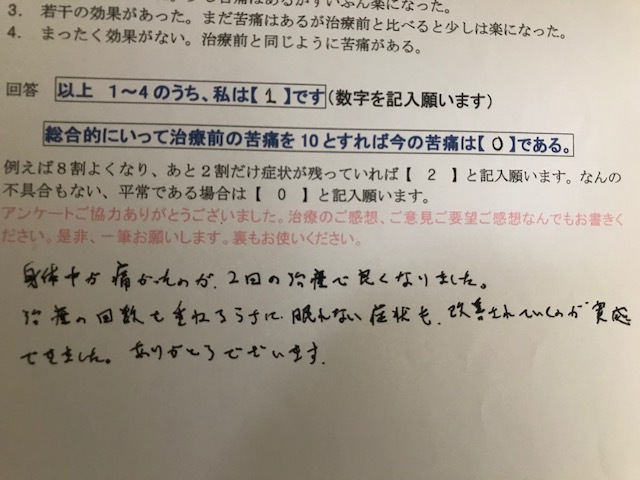 少し苦痛はあるがずいぶん楽になった。
3. 若干の効果があった。まだ苦痛はあるが治療前と比べると少しは楽になった。
4. まったく効果がない。治療前と同じように苦痛がある。
回答 以上 1～4のうち、私は【 1 】です(数字を記入願います)
総合的にいって治療前の苦痛を10とすれば今の苦痛は【 0 】である。
例えば8割よくなり、あと2割だけ症状が残っていれば【 2 】と記入願います。なんの
不具合もない、平常である場合は【 0 】と記入願います。
アンケートご協力ありがとうございました。治療のご感想、ご意見ご要望ご感想なんでもお書きく
ださい。是非、一筆お願いします。裏もお使いください。
身体中が痛かったのが、2回の治療で良くなりました。
治療の回数を重ねるうちに眠れない症状も、改善されていくのが実感
できました。ありがとうございます。